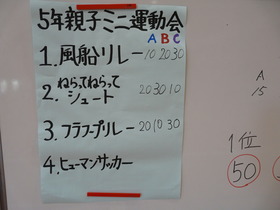 5年親子ミニ運動会
A B C
1. 風船リレー 10 20 30
2. ねらってねらって
シュート 20 30 10
3. フラフープリレー 20 10 30
4. ヒューマンサッカー
A
15
1位
50